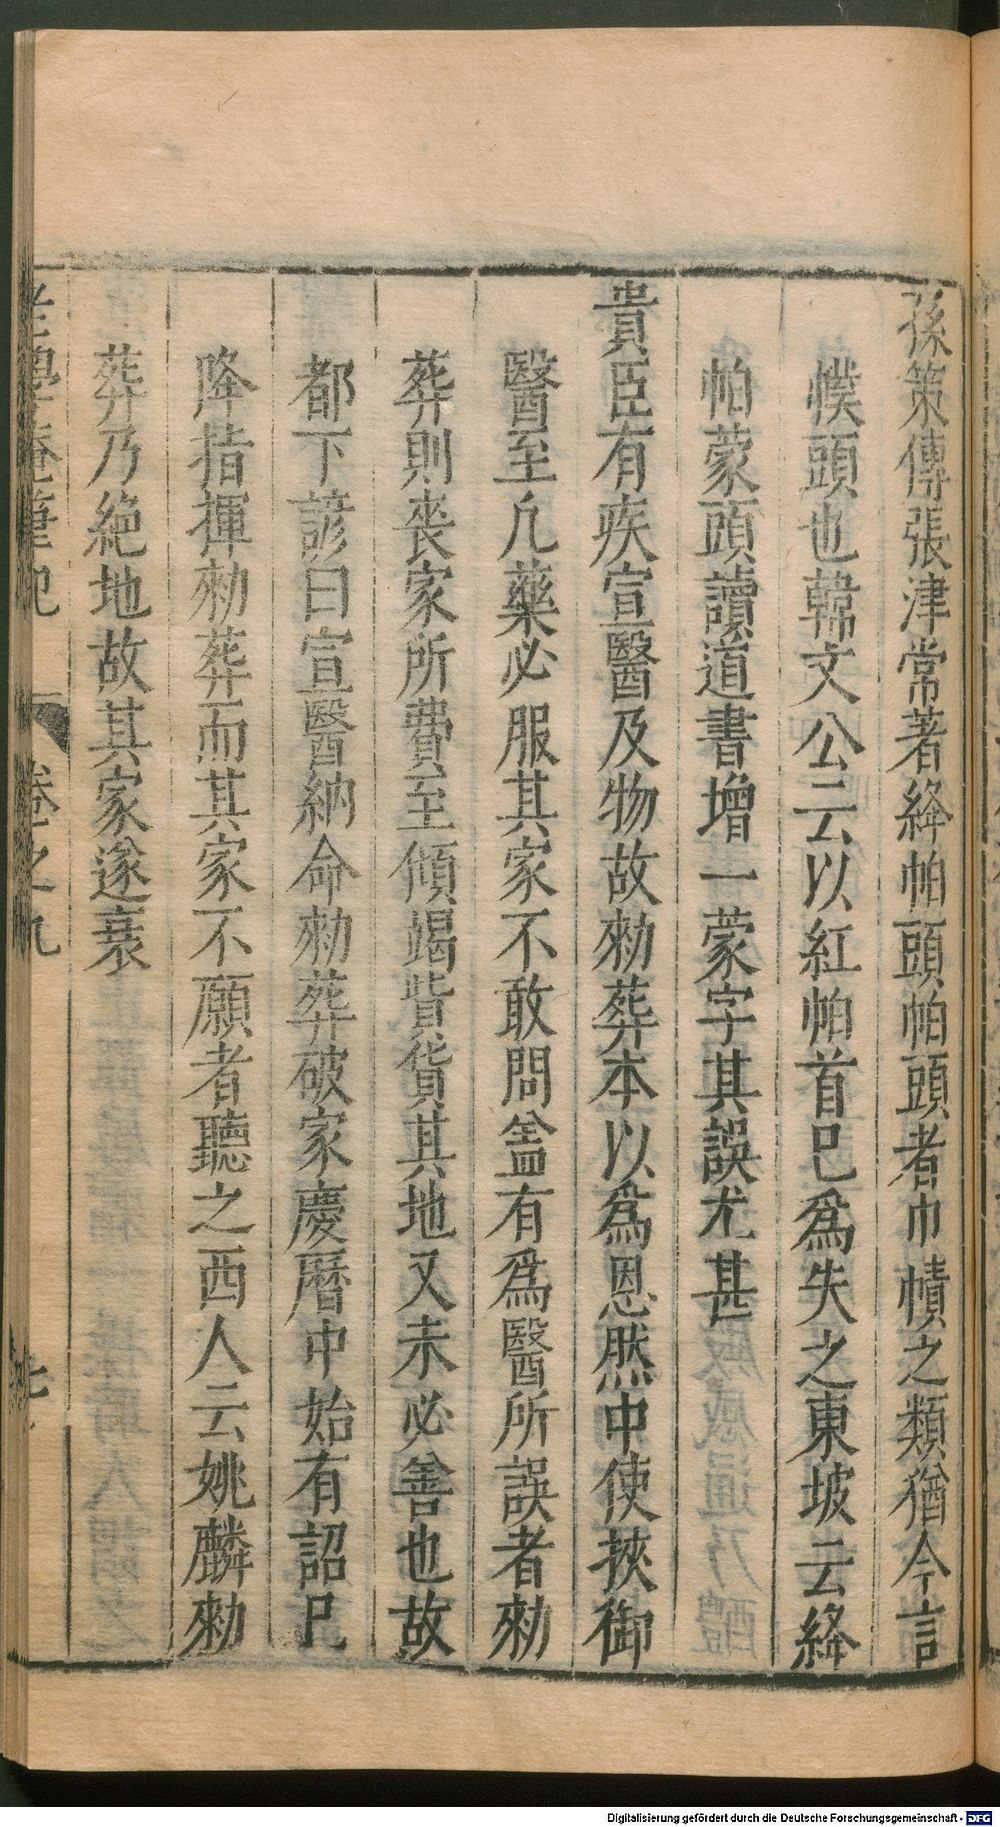 孫策傳張津常著絳帕頭帕頭者巾幘之類猶今言
幞頭也韓文公云以紅帕首已爲失之東坡云絳
帕蒙頭讀道書增一蒙字其誤尤甚
貴臣有疾宣醫及物故勑葬本以爲恩然中使挾御
醫至凡藥必服其家不敢問盖有爲醫所誤者勑
葬則喪家所費至傾竭貲貨其地又未必善也故
都下諺曰宣醫納命勑葬破家慶曆中始有詔已
降指揮勑葬而其家不願者聽之西人云姚麟勑
葬乃絶地故其家遂衰
老學庵筆記 卷之九
Digitalisierung gefördert durch die Deutsche Forschungsgemeinschaft - DFG